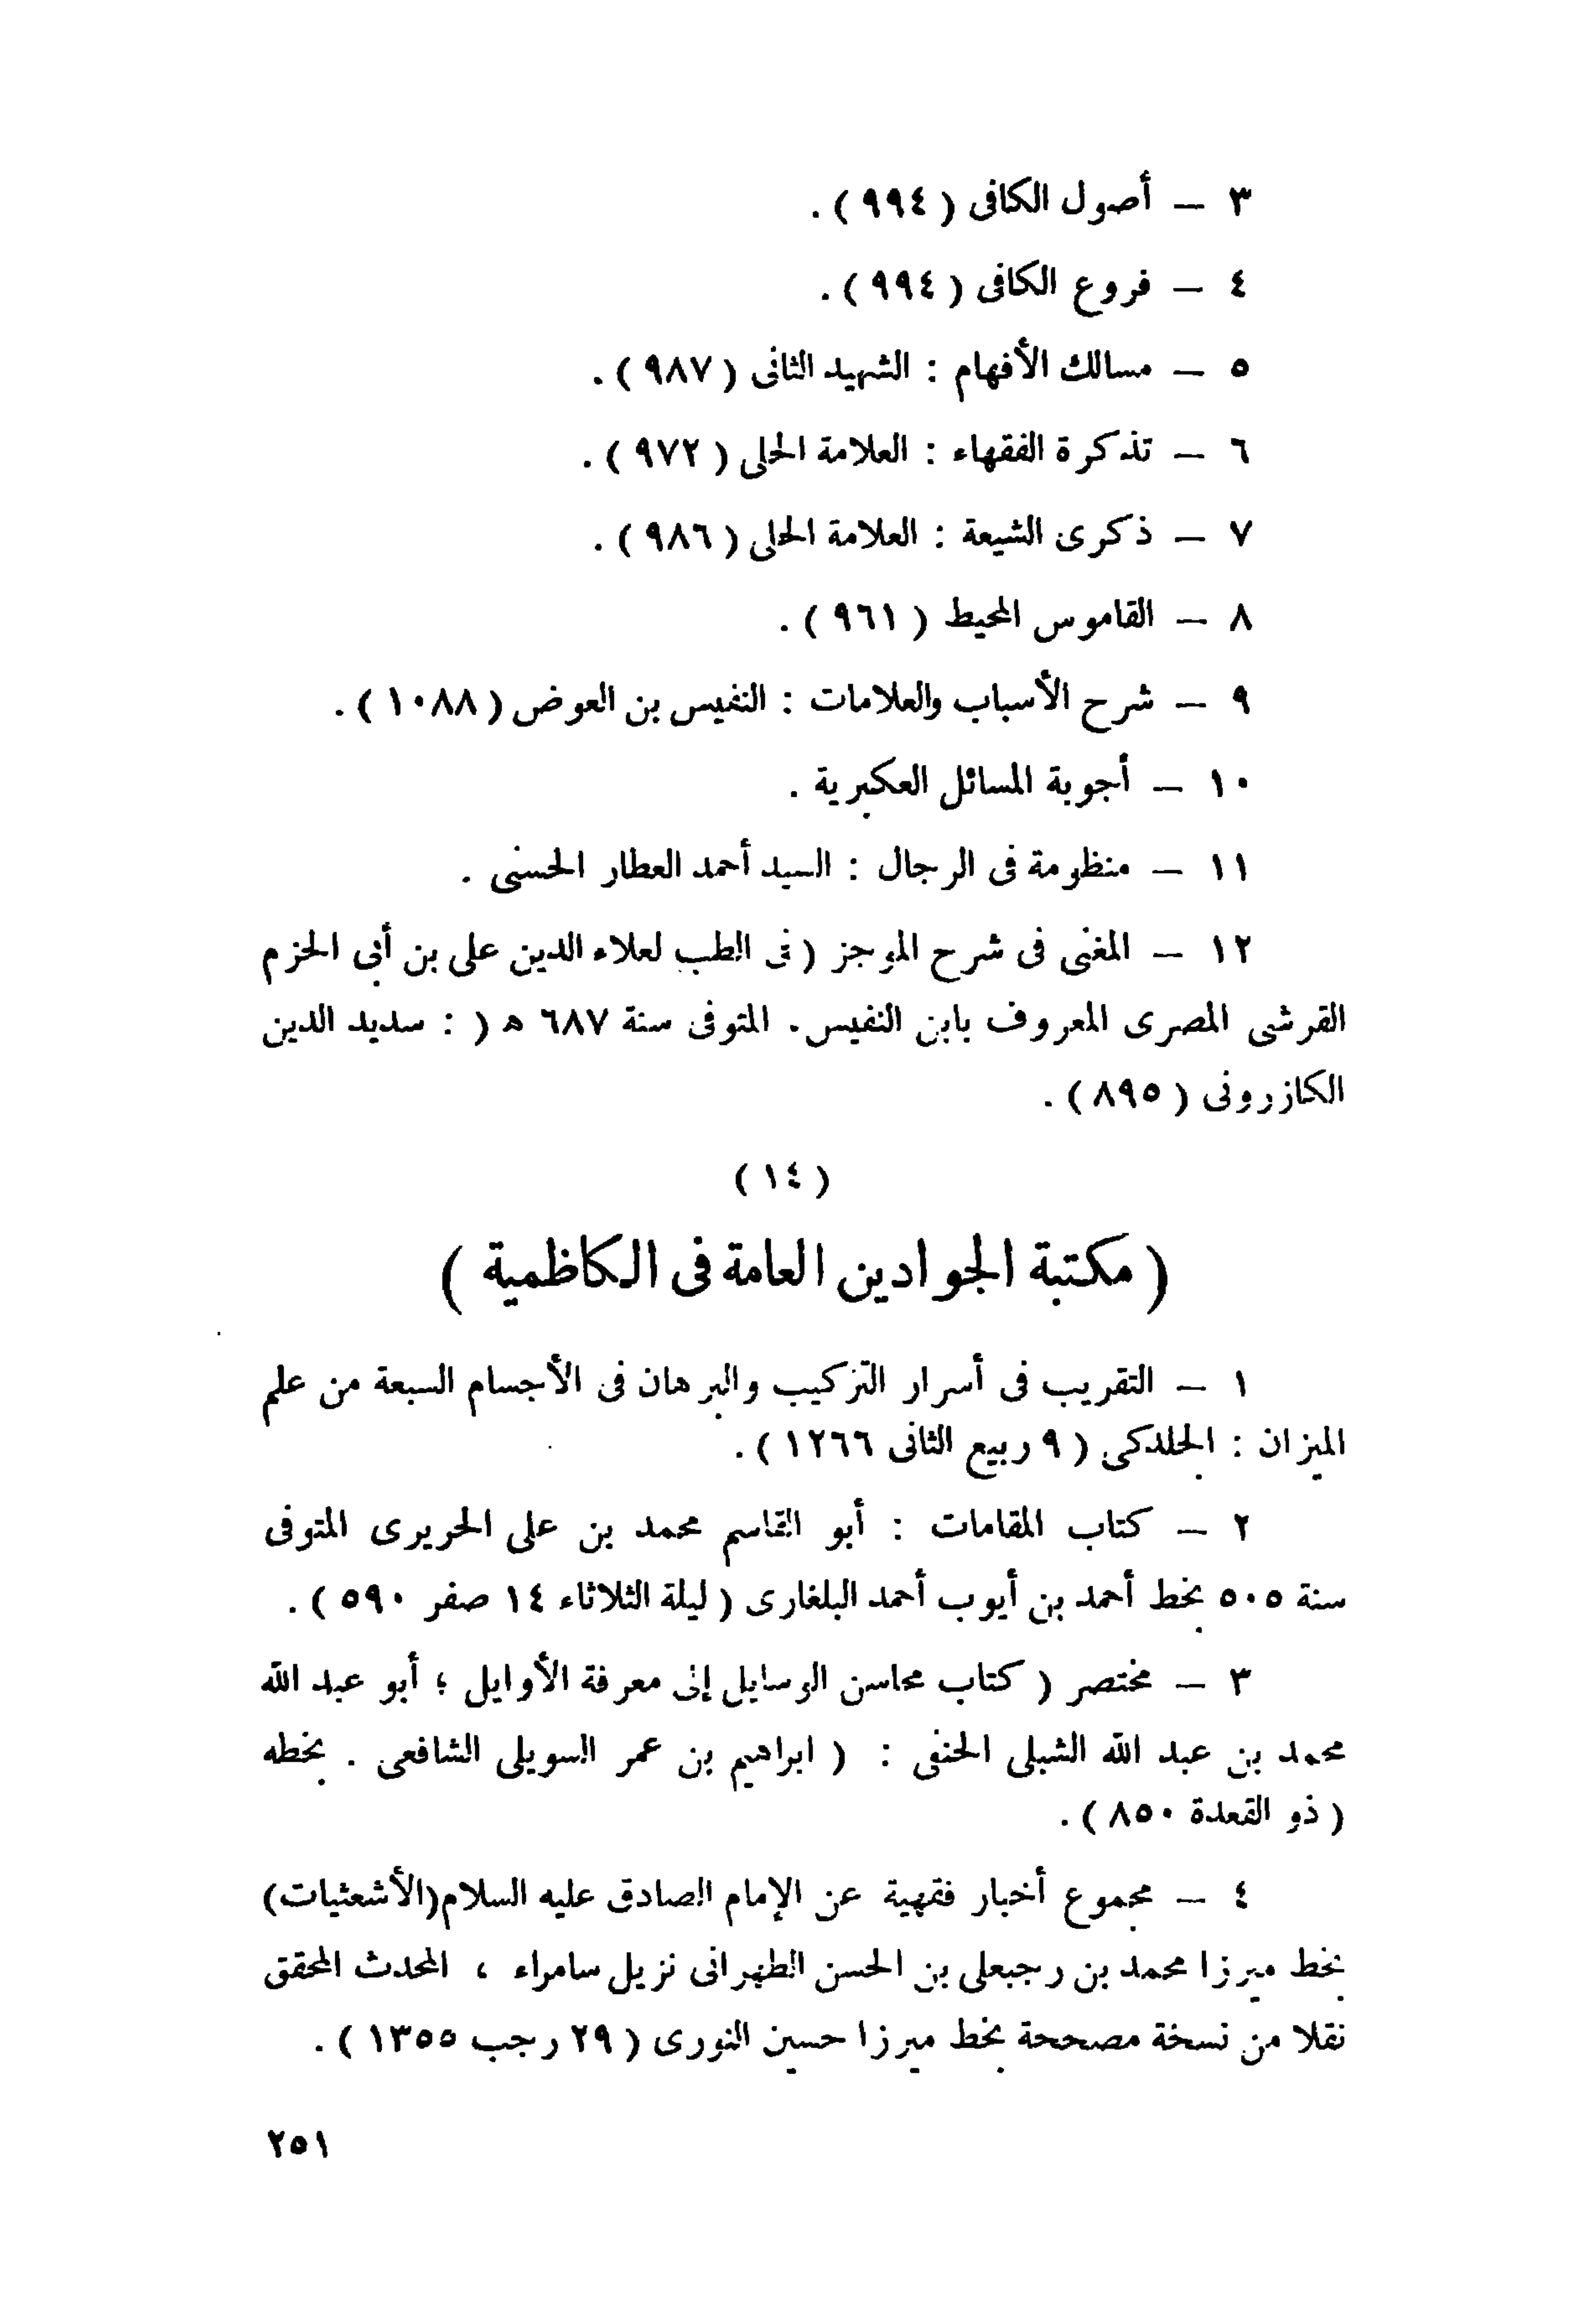 ٣ — أصول الكافى ( ٩٩٤ ) .
٤ — فروع الكافى ( ٩٩٤ ) .
٥ — مسالك الأفهام : الشهيد الثانى ( ٩٨٧ ) .
٦ — تذكرة الفقهاء : العلامة الحلى ( ٩٧٢ ) .
٧ — ذكرى الشيعة : العلامة الحلى ( ٩٨٦ ) .
٨ — القاموس المحيط ( ٩٦١ ) .
٩ — شرح الأسباب والعلامات : النفيس بن العوض ( ١٠٨٨ ) .
١٠ — أجوبة المسائل العكبرية .
١١ — منظومة فى الرجال : السيد أحمد العطار الحسنى .
١٢ — المغنى فى شرح الموجز ( فى الطب لعلاء الدين على بن أبى الحزم
القرشى المصرى المعروف بابن النفيس. المتوفى سنة ٦٨٧ ه ) : سديد الدين
الكازرونى ( ٨٩٥ ) .
( ١٤ )
( مكتبة الجوادين العامة فى الكاظمية )
١ — التقريب فى أسرار التركيب والبرهان فى الأجسام السبعة من علم
الميزان : الجلدكى ( ٩ ربيع الثانى ١٢٦٦ ) .
٢ — كتاب المقامات : أبو القاسم محمد بن على الحريرى المتوفى
سنة ٥٠٥ بخط أحمد بن أيوب أحمد البلغارى ( ليلة الثلاثاء ١٤ صفر ٥٩٠ ) .
٣ — مختصر ( كتاب محاسن الوسايل إلى معرفة الأوايل ؛ أبو عبد الله
محمد بن عبد الله الشبلى الحنفى : ( ابراهيم بن عمر السويلى الشافعى . بخطه
( ذو القعدة ٨٥٠ ) .
٤ — مجموع أخبار فقهية عن الإمام الصادق عليه السلام (الأشعثيات)
بخط ميرزا محمد بن رجبعلى بن الحسن الطهرانى نزيل سامراء ، المحدث المحقق
نقلا من نسخة مصححة بخط ميرزا حسين النورى ( ٢٩ رجب ١٣٥٥ ) .
٢٥١